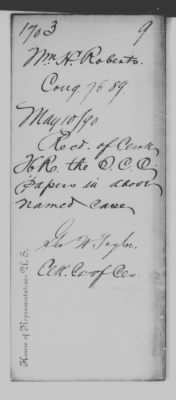 1703 9
Wm. H. Roberts.
Cong. 7589.
May 10/90
Recd. of Clerk
H.R. the O.C.C.
papers in above
named case
Geo W Taylor
Clk. Co of Ces.
House of Representatives U.S.